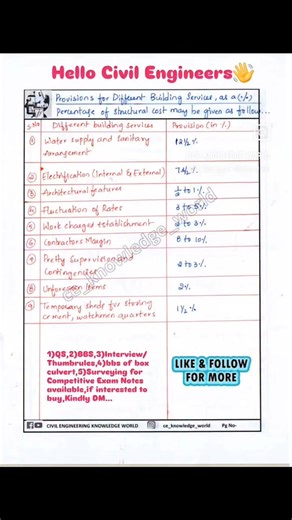 Hello Civil Engineers👋
Provisions for Different Building Services, as a (·/.)
Percentage of structural cost may be given as follow...
S.No Different building services Provision (in ·/.)
① Water supply and Sanitary Arrangement 12½ ·/.
② Electrification (Internal & External) 7½ ·/.
③ Architectural features ½ to 1 ·/.
④ Fluctuation of Rates 3 to 5 ·/.
⑤ Work charged establishment 2 to 3 ·/.
⑥ Contractors Margin 8 to 10 ·/.
⑦ Pretty Supervision and Contingencies 2 to 3 ·/.
⑧ Unforeseen Items 2 ·/.
⑨ Temporary sheds for storing cement, watchmen quarters 1½ ·/.
ce_knowledge_world
1)QS,2)BBS,3)Interview/
Thumbrules,4)bbs of box
culvert,5)Surveying for
Competitive Exam Notes
available,if interested to
buy,Kindly DM...
LIKE & FOLLOW
FOR MORE
CIVIL ENGINEERING KNOWLEDGE WORLD ce_knowledge_world Pg No-